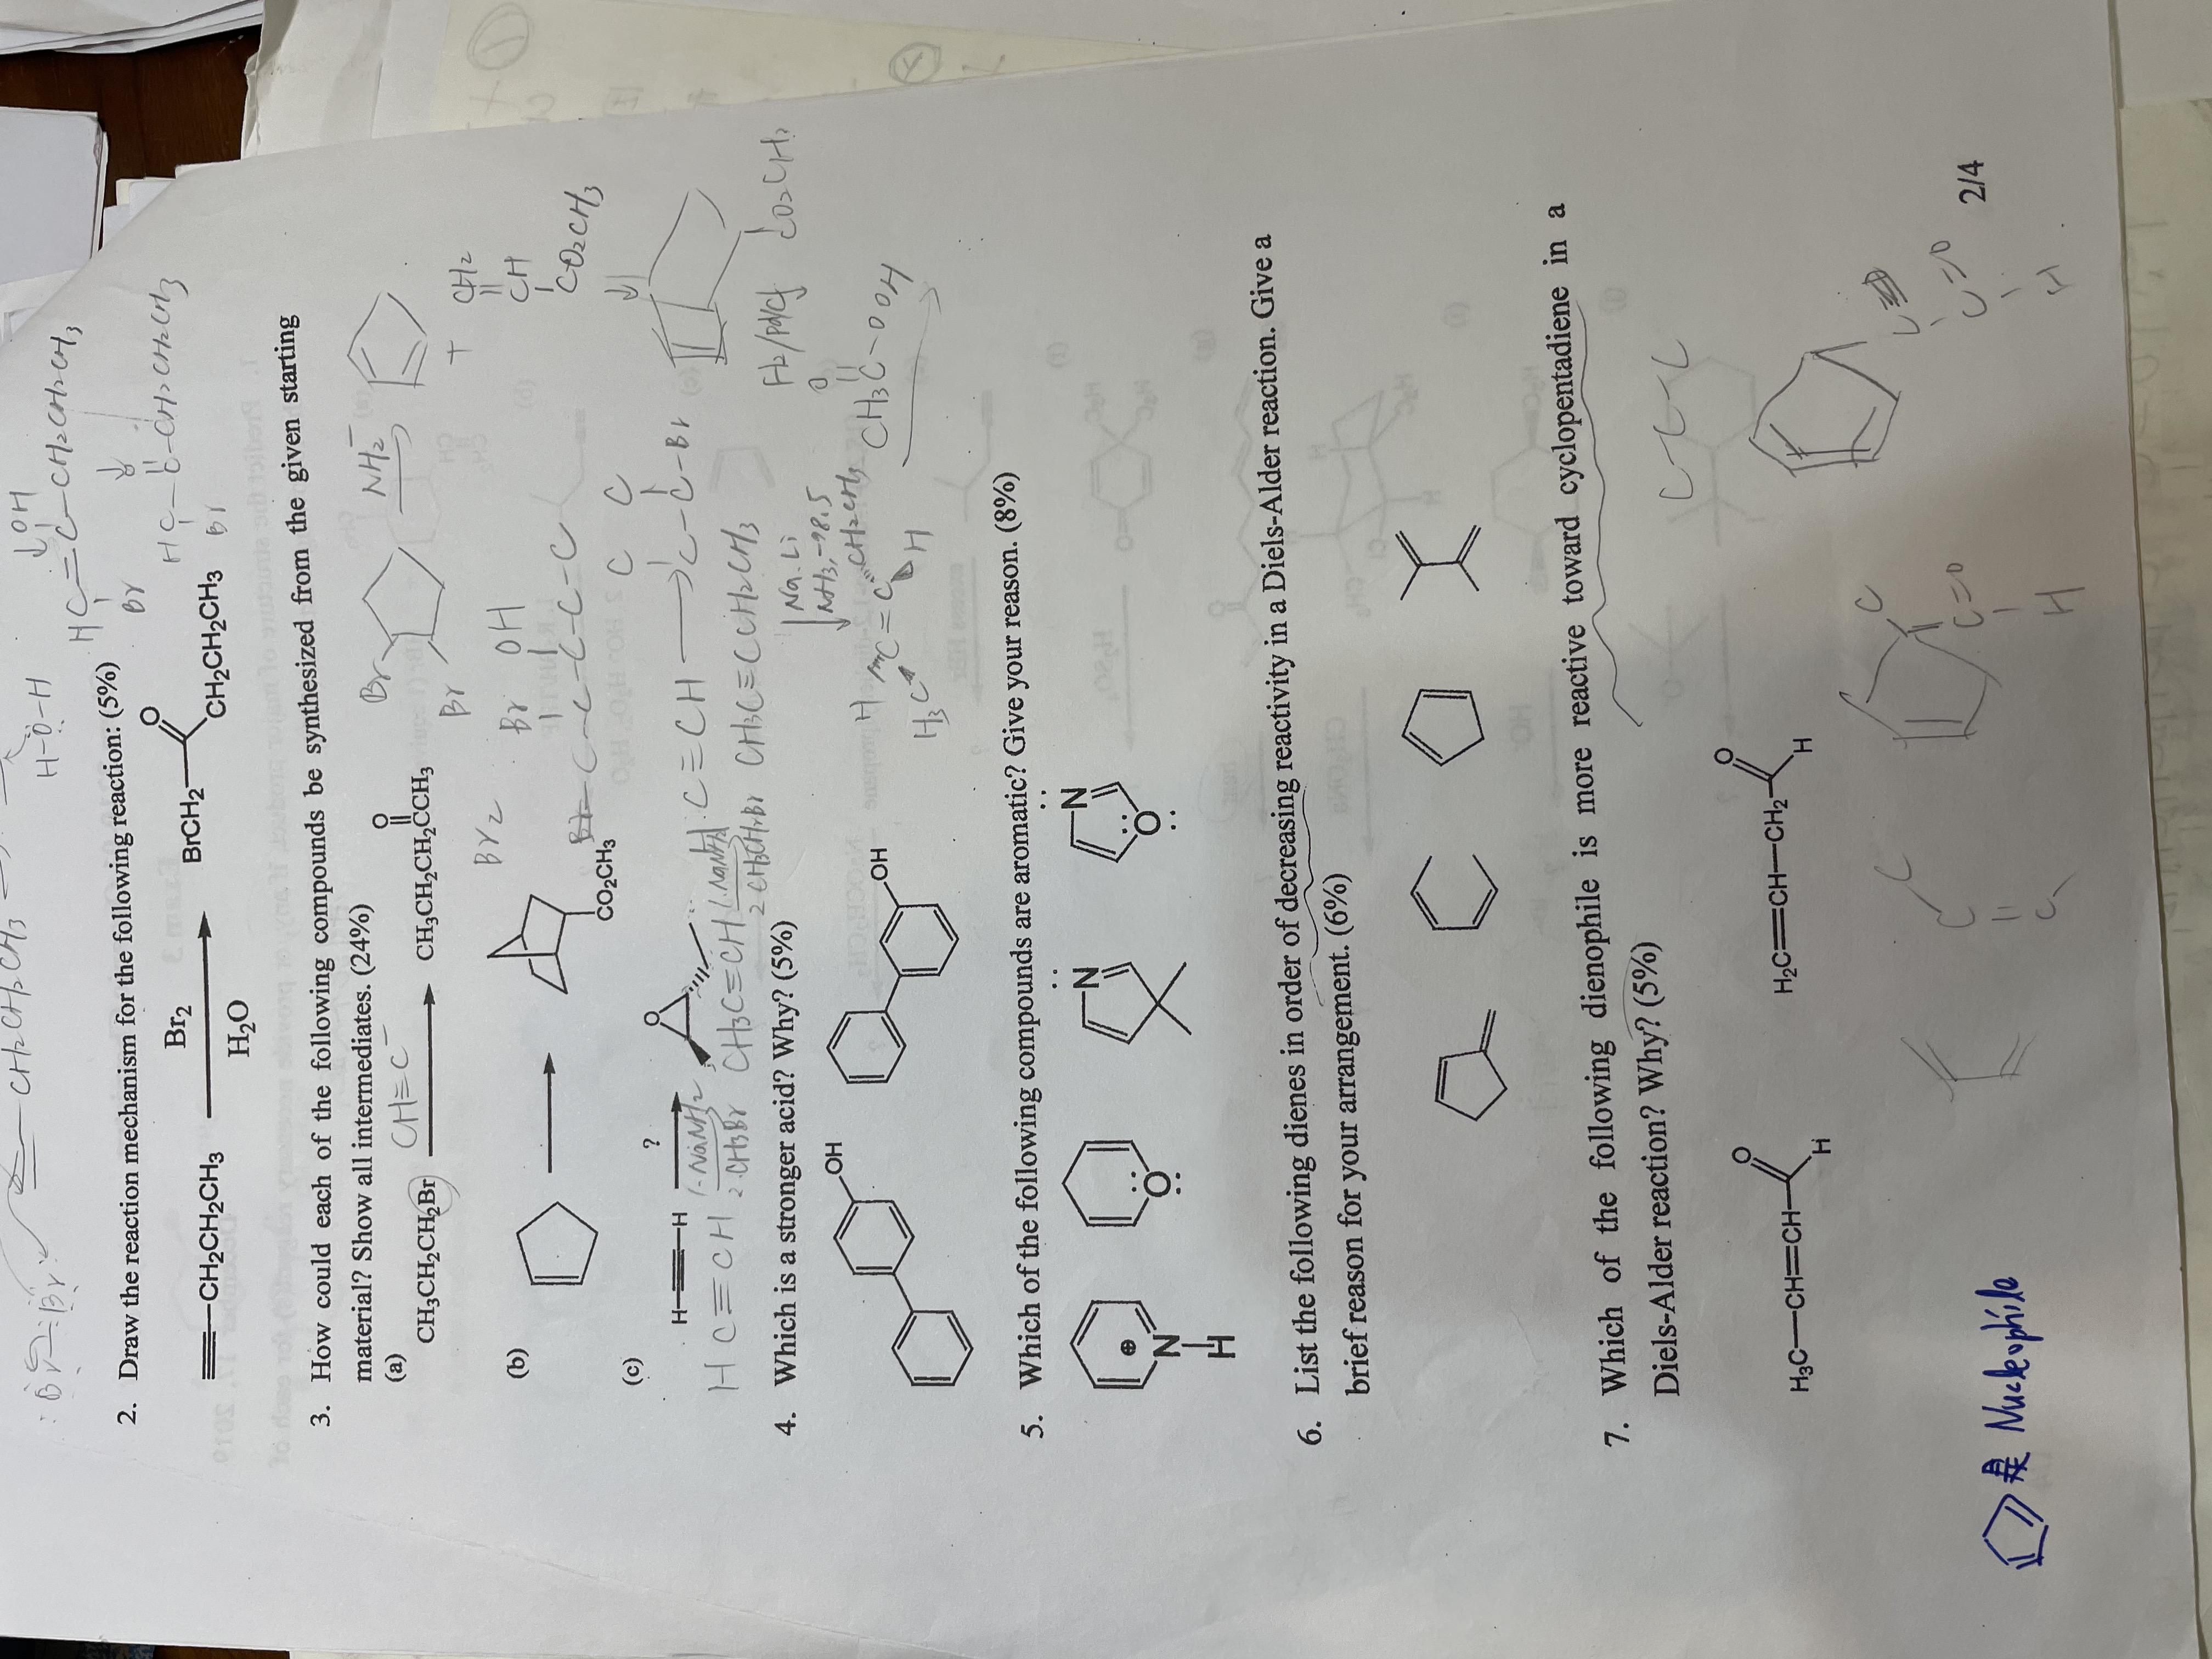 :Br—Br:
≡—CH2CH2CH3
H-Ö-H
OH
HC=C-CH2CH2CH3
Br
2. Draw the reaction mechanism for the following reaction: (5%)
O
HC-C-CH2CH2CH3
Br
≡—CH2CH2CH3
Br2
H2O
BrCH2
O
CH2CH2CH3
3. How could each of the following compounds be synthesized from the given starting
material? Show all intermediates. (24%)
(a)
CH3CH2CH2Br
CH≡C−
O
CH3CH2CH2CCH3
Br
Br
NH2−
+
CH2
CH
CO2CH3
(b)
CO2CH3
Br2
Br OH
C-C-C-C-C
(c)
H≡H
?
O
C C
H C≡CH → C-C-Br
H C≡CH
1. NaNH2
2. CH3Br
CH3C≡CH
1. NaNH2
2 CH3CH2Br
CH3C≡CCH2CH3
H2/Pd/C
CO2CH3
4. Which is a stronger acid? Why? (5%)
Na. Li
NH3, -78.5
OH
OH
H
C=C
CH2CH3
H3C
H
O
CH3C-OOH
5. Which of the following compounds are aromatic? Give your reason. (8%)
⊕
N
H
O
N
N
O
6. List the following dienes in order of decreasing reactivity in a Diels-Alder reaction. Give a
brief reason for your arrangement. (6%)
7. Which of the following dienophile is more reactive toward cyclopentadiene in a
Diels-Alder reaction? Why? (5%)
C-C-C
H3C—CH=CH
O
H
H2C=CH—CH2
O
H
C
C
C
C
C=O
H
C
C=O
H
是 Nucleophile
2/4